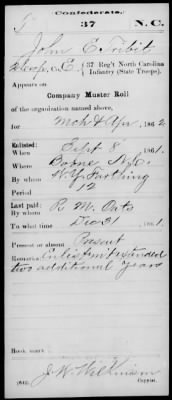 Confederate.
T 37 N. C.
John E. Tribit
Corp, Co. E, 37 Reg't North Carolina
Infantry (State Troops).
Appears on
Company Muster Roll
of the organization named above,
for Mch & Apr, 1862
Enlisted:
When Sept 8, 1861.
Where Boone N.C.
By whom W. Y. Farthing
Period 12
Last paid:
By whom R. M. Oats
To what time Dec 31, 1861.
Present or absent Present
Remarks: Enlistm't extended
two additional years
Book mark:
J. W. Wilkinson
(642) Copyist.